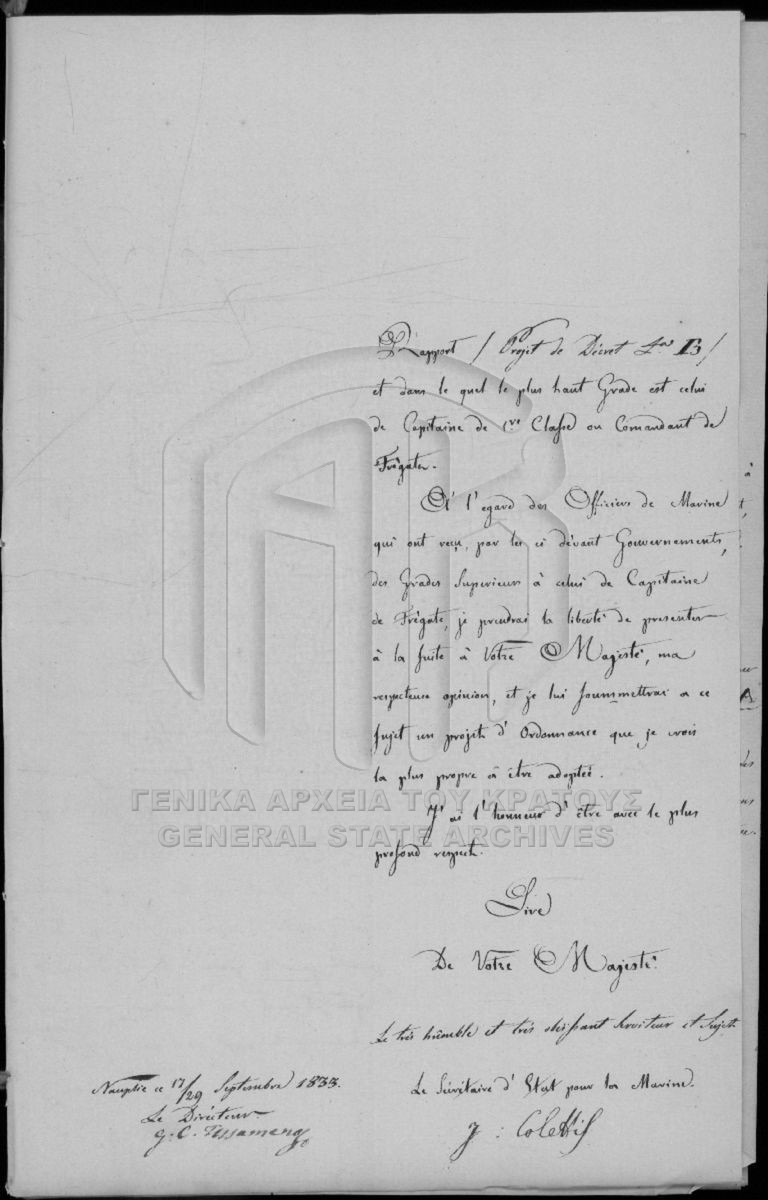 Rapport / Projet de Décret B /
et dans le quel le plus haut Grade est celui
de Capitaine de 1re Classe ou Comandant de
Frégate.
A l'egard des Officiers de Marine
qui ont reçu, par les ci dévant Gouvernements,
des Grades Superieurs à celui de Capitaine
de Frégate, je prendrai la liberté de presenter
à la suite à Votre Majesté, ma
respecteuse opinion, et je lui soummettrai a ce
sujet un projet d'Ordonnance que je crois
la plus propre à être adoptée.
ΓΕΝΙΚΑ ΑΡΧΕΙΑ ΤΟΥ ΚΡΑΤΟΥΣ
GENERAL STATE ARCHIVES
J'ai l'honneur d'être avec le plus
profond respect.
Sire
De Votre Majesté.
Le très humble et très obeissant Serviteur et Sujet
Le Sécrétaire d'Etat pour la Marine.
J: Colettis
Nauplie ce 17/29 Septembre 1833.
Le Directeur
G. C.